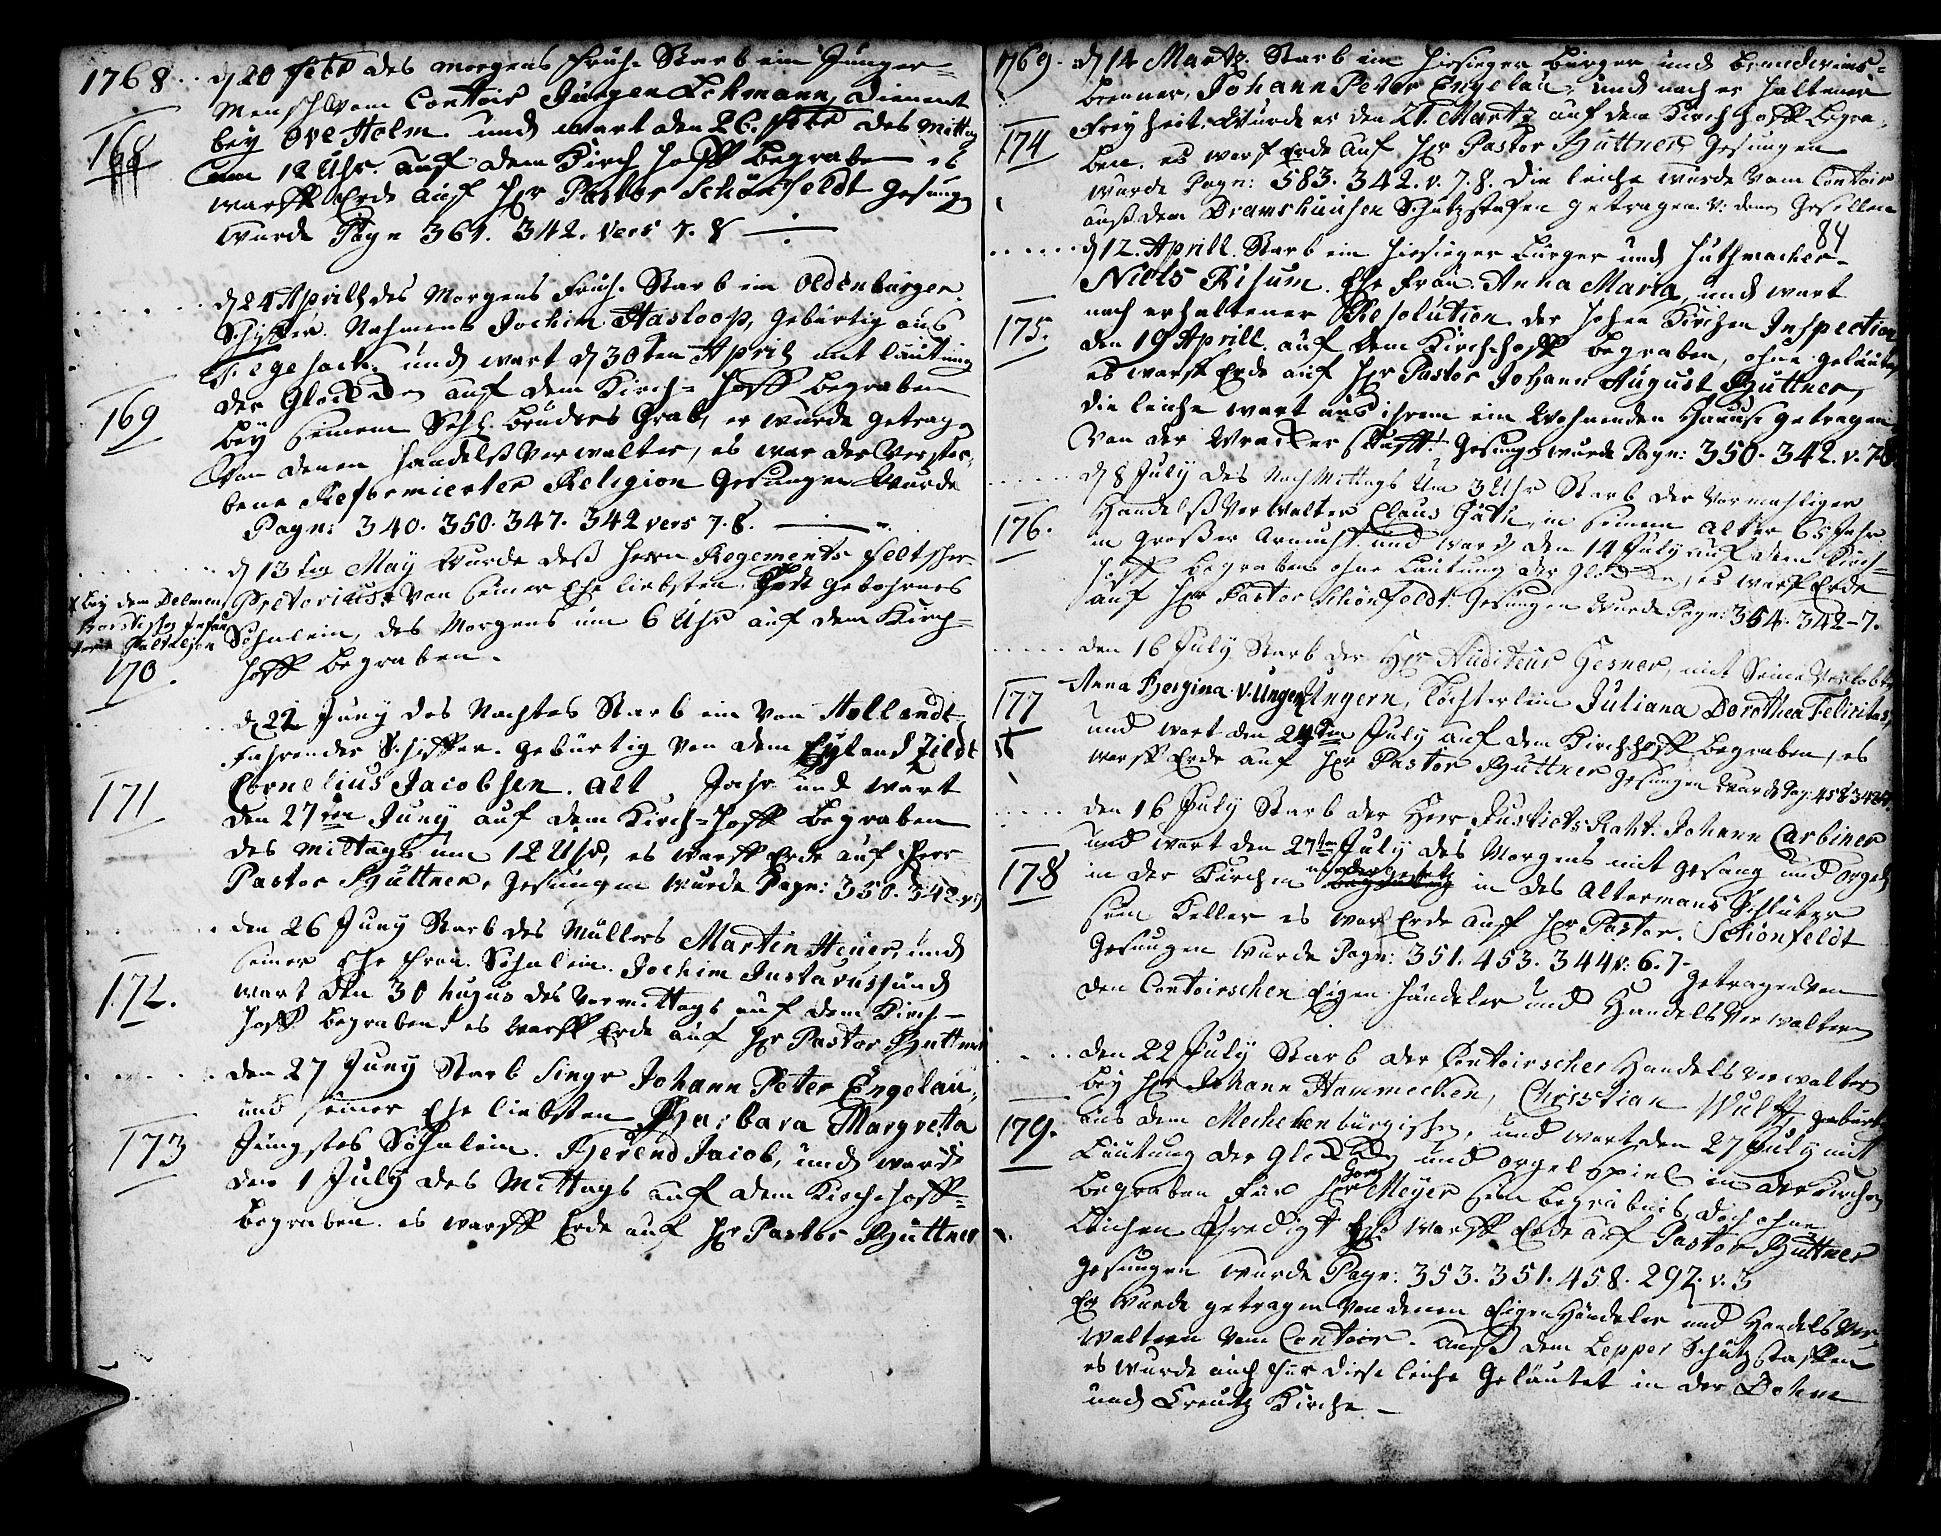 1768. d 20 Febr des morgens früh. Starb ein Junger-
Mensch vom Contoir Jürgen Lehmann, dienent
168 bey Ove Holm. und wart den 26. Febr des Mittag
um 12 Uhr. auf dem Kirch Hoff begraben es
warff Erde auf Hr Pastor Schönfeldt Gesung
wurde Pagn 361. 342. vers 7. 8
d 24 Aprill des Morgens früh. Starb ein Oldenburger
Schiffer. Nahmens Jochim Hasloop, gebürtig aus
Fegesack. und wart d 30ten April mit läutung
der Glocken auf dem Kirch-Hoff begraben
169 bey seinem Sehl. bruders Grab, er wurde getrag
von denen Handelßverwalter, es war der verstor-
bene Reformierter Religion Gesungen Wurde
Pagn: 340. 350. 347. 342 vers 7. 8.
d 13ten May Wurde deß Herrn Regements feltscher
x bey dem Delmen
Horstischen Infan
terie Battaljon
Pretorius. von seiner Eheliebsten Todt gebohrnes
Söhnlein, des Morgens um 6 Uhr auf dem Kirch-
170. Hoff begraben.
d 22 Juny des Nachtes Starb ein von Hollandt
fahrender Schiffer. gebürtig von dem Eyland Zildt
171 Cornelius Jacobsen. alt Jahr und wart
den 27ten Juny auf dem Kirch-Hoff begraben
des mittags um 12 Uhr, es warff Erde auf Herr
Pastor Büttner, gesungen wurde Pagn: 350. 342. v 7
den 26 Juny Starb des Müllers Martin Heuer, und
seiner Ehe frau. Söhnlein. Jochim Justavus, und
172. wart den 30 hujus des Vormittags auf dem Kirch-
Hoff begraben es warff Erde auf Hr Pastor Büttner
den 27 Juny Starb Singr Johann Peter Engelau,
und seiner Ehe liebsten Barbara Margretta
173 Jüngstes Söhnlein. Berend Jacob, und wurde
den 1 July des Mittags auf dem Kirchhoff-
begraben. es warff Erde auf Hr Pastor Büttner
1769. d 14 Martz. Starb ein hiesieger Bürger und Brandweins-
brenner, Johann Peter Engelau, und nach er haltener
174 Freyheit. Wurde er den 21. Martz auf dem Kirchhoff begra-
ben. es warf Erde auf Hr Pastor Büttner Gesungen
wurde Pagn: 583. 342. v. 7. 8. die leiche wurde vom Contoir
auß dem Bramshausen Schützstafen getragen. v: denen Gesellen
84
d 12. Aprill. Starb ein hiesieger Bürger und Huthmacher-
Niels Risum. Ehe frau. Anna Maria, und wart
175. nach erhaltener Resolution der Hohen Kirchen Inspection
den 19 Aprill. auf dem Kirchhoff begraben, ohne geläute
es warff Erde auf Hr Pastor Johann August Büttner,
die leiche wart aus ihrem ein Wohnenden Hause getragen
von der Wracker skafft. Gesungen wurde Pagn: 350. 342. v. 7. 8
d 8 July des NachMittags Um 3 Uhr Starb der Vormahliger
176. Handelßverwalter Claus Gäth, in seinem Alter 65 Jahr
in großer Armuth und ward den 14 July auf dem Kirch-
Hoff begraben ohne Läutung der Glocken, es warff Erde
auf Hr Pastor Schönfeldt. Gesungen wurde Pagn: 354. 342-7.
den 16 July Starb der Hr Auditeur Gesner, mit Seine Verlobte
177 Anna Bergina v. Ungern, Töchterlein Juliana Dorothea Felicitas,
und wart den 24ten July auf dem Kirchhoff begraben, es
warff Erde auf Hr Pastor Büttner Gesungen wurde Pag: 458 342
den 16 July Starb der Herr JustictsRaht. Johann Carbiner
und wart den 27ten July des Morgens mit gesang und orgel
178 in der Kirchen in des Altermans Schlüter
sein Keller es warf Erde auff Hr Pastor. Schönfeldt
Gesungen wurde Pagn: 351. 453. 344 v: 6. 7- getragen von
den Contoirschen Eigen-Händeler und Handels Verwaltern
den 22 July Starb der Contoirscher Handelsverwalter
bey Hr Johann Hammecken, Christian Wulff gebürt
179. aus dem Mechelenbürgischen, und wart den 27 July mit
Läutung der Glocken und orgel Spiel in der Kirchen
begraben für Hr Meyer sein begräbnis, doch ohne
Leichen Predigt Es warff Erde auf Pastor Büttner
gesungen wurde Pagn: 353. 351. 458. 292. v. 3
Er wurde getragen von denen Eigen Händeler und Handels Ver
waltern vom Contoir. auß dem Lepper Schützstaffen
es wurde auch für diese leiche Geläutet in der Dohm
und Creutz Kirche.